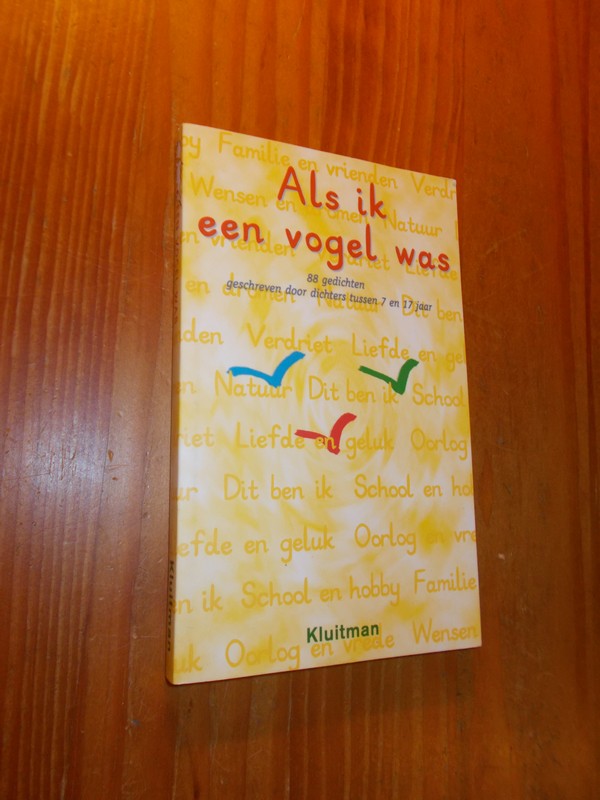 by Familie en vrienden Verdri
Wensen en dromen Natuur
Als ik
een vogel was
en vrienden Verdriet Liefde
88 gedichten
geschreven door dichters tussen 7 en 17 jaar
en dromen Natuur Dit ben
den Verdriet Liefde en gel
en Natuur Dit ben ik School
riet Liefde en geluk Oorlog
ur Dit ben ik School en hob
efde en geluk Oorlog en vre
n ik School en hobby Familie
Kluitman
uk Oorlog en vrede Wensen
Kluitman